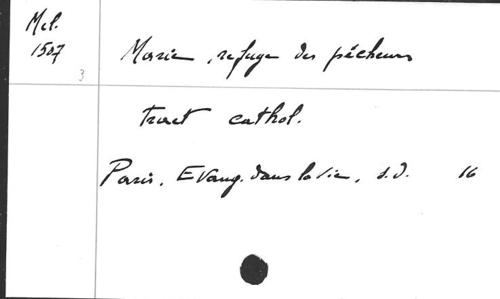 Mel.
1507
3
Marie, refuge des pécheurs
tract cathol.
Paris, Evang. dans la vie, s.d. 16